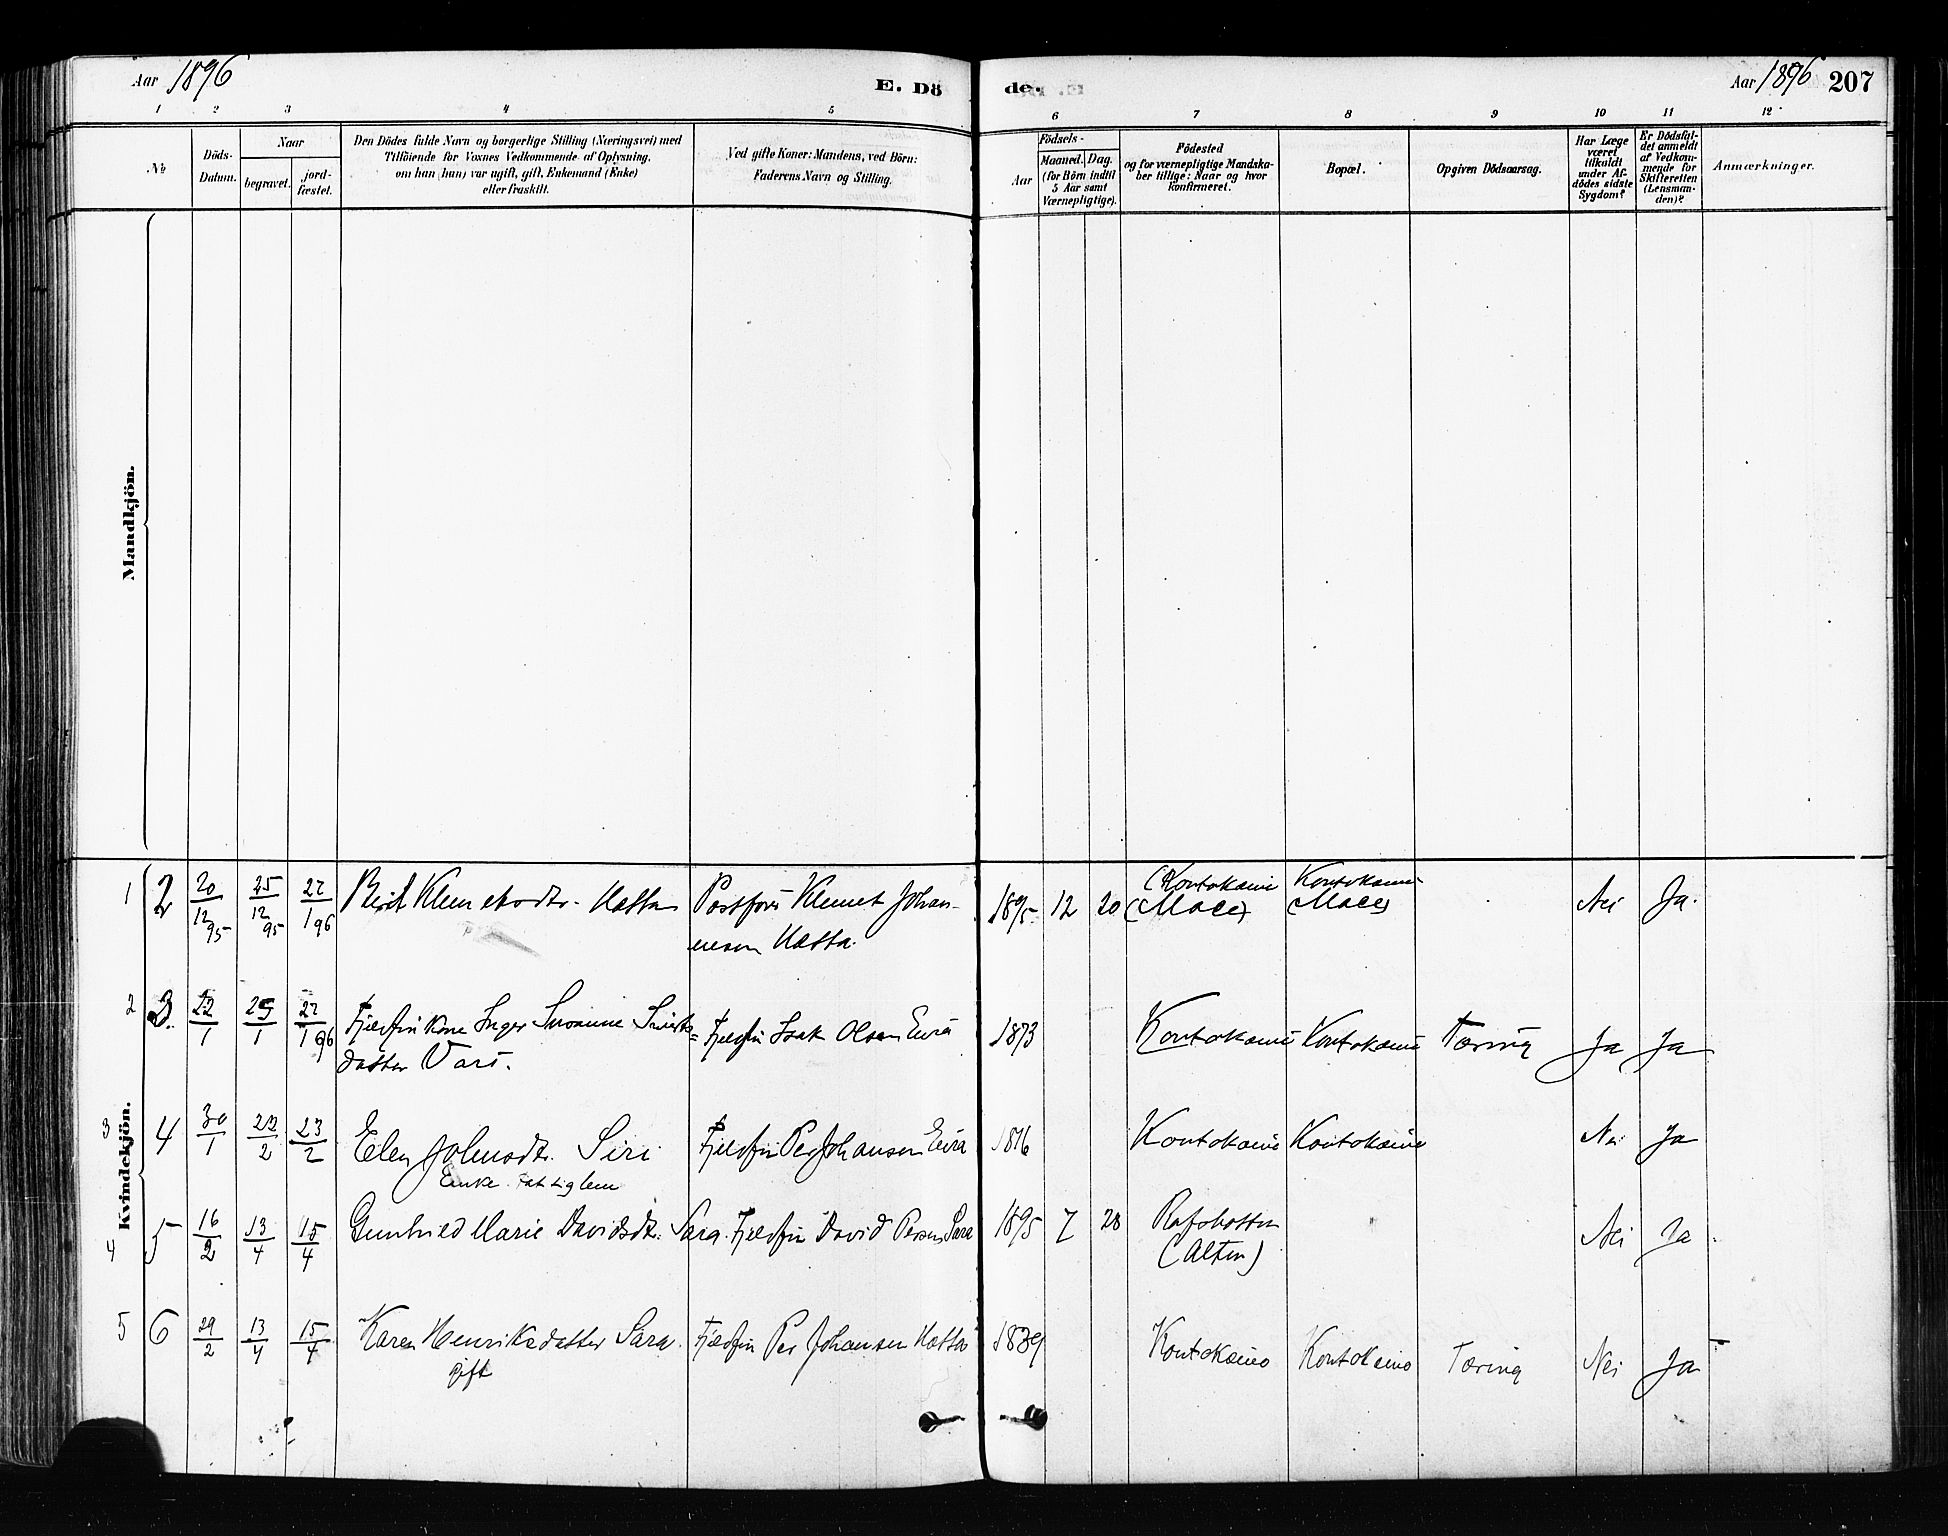 Aar 1896
E. Dö
de.
Aar 1896 207
1 2 3 4 5 6 7 8 9 10 11 12
No
Döds-
Datum.
Naar
begravet.
jord-
fæstet.
Den Dödes fulde Navn og borgerlige Stilling (Næringsvei) med
Tilföiende for Voxnes Vedkommende af Oplysning,
om han (hun) var ugift, gift, Enkemand (Enke)
eller fraskilt.
Ved gifte Koner: Mandens, ved Börn:
Faderens Navn og Stilling.
Födsels-
Aar
Maaned. Dag.
(for Börn indtil
5 Aar samt
Værnepligtige).
Födested
og for værnepligtige Mandska-
ber tillige: Naar og hvor
konfirmeret.
Bopæl.
Opgiven Dödsaarsag.
Har Læge
været
tilkaldt
under Af-
dödes sidste
Sygdom?
Er Dödsfal-
det anmeldt
af Vedkom-
mende for
Skifteretten
(Lensman-
den)?
Anmærkninger.
Mandkjön.
Kvindekjön.
1 2 20/12 95 25/12 95 22/1 96 Berit Klemetsdtr. Hætta Klemet Johan- 1895 12 20 Kautokeino Kautokeino Nei Ja.
nesen Hætta.
(Mace) (Mace)
2 3 22/1 25/1 22/1 96 Fjeldfin kone Inger Susanne Fjeldfin Isak Olsen Eira 1873 Kautokeino Kautokeino Tæring Ja Ja
datter Vars.
3 4 30/1 22/2 23/2 Elen Johnsdtr. Siri Fjeldfin Per Johansen Eira 1816 Kautokeino Kautokeino Nei Ja
Enke Fattiglem
4 5 16/2 13/4 15/4 Gunhild Marie Davidsdtr. Sara. Fjeldfin David Persen Sara 1895 7 28 Rafsbotten Nei Ja
(Alten)
5 6 29/2 13/4 15/4 Karen Henriksdatter Sara. Fjeldfin Per Johansen Hætta 1839 Kautokeino Kautokeino Tæring Nei Ja
gift